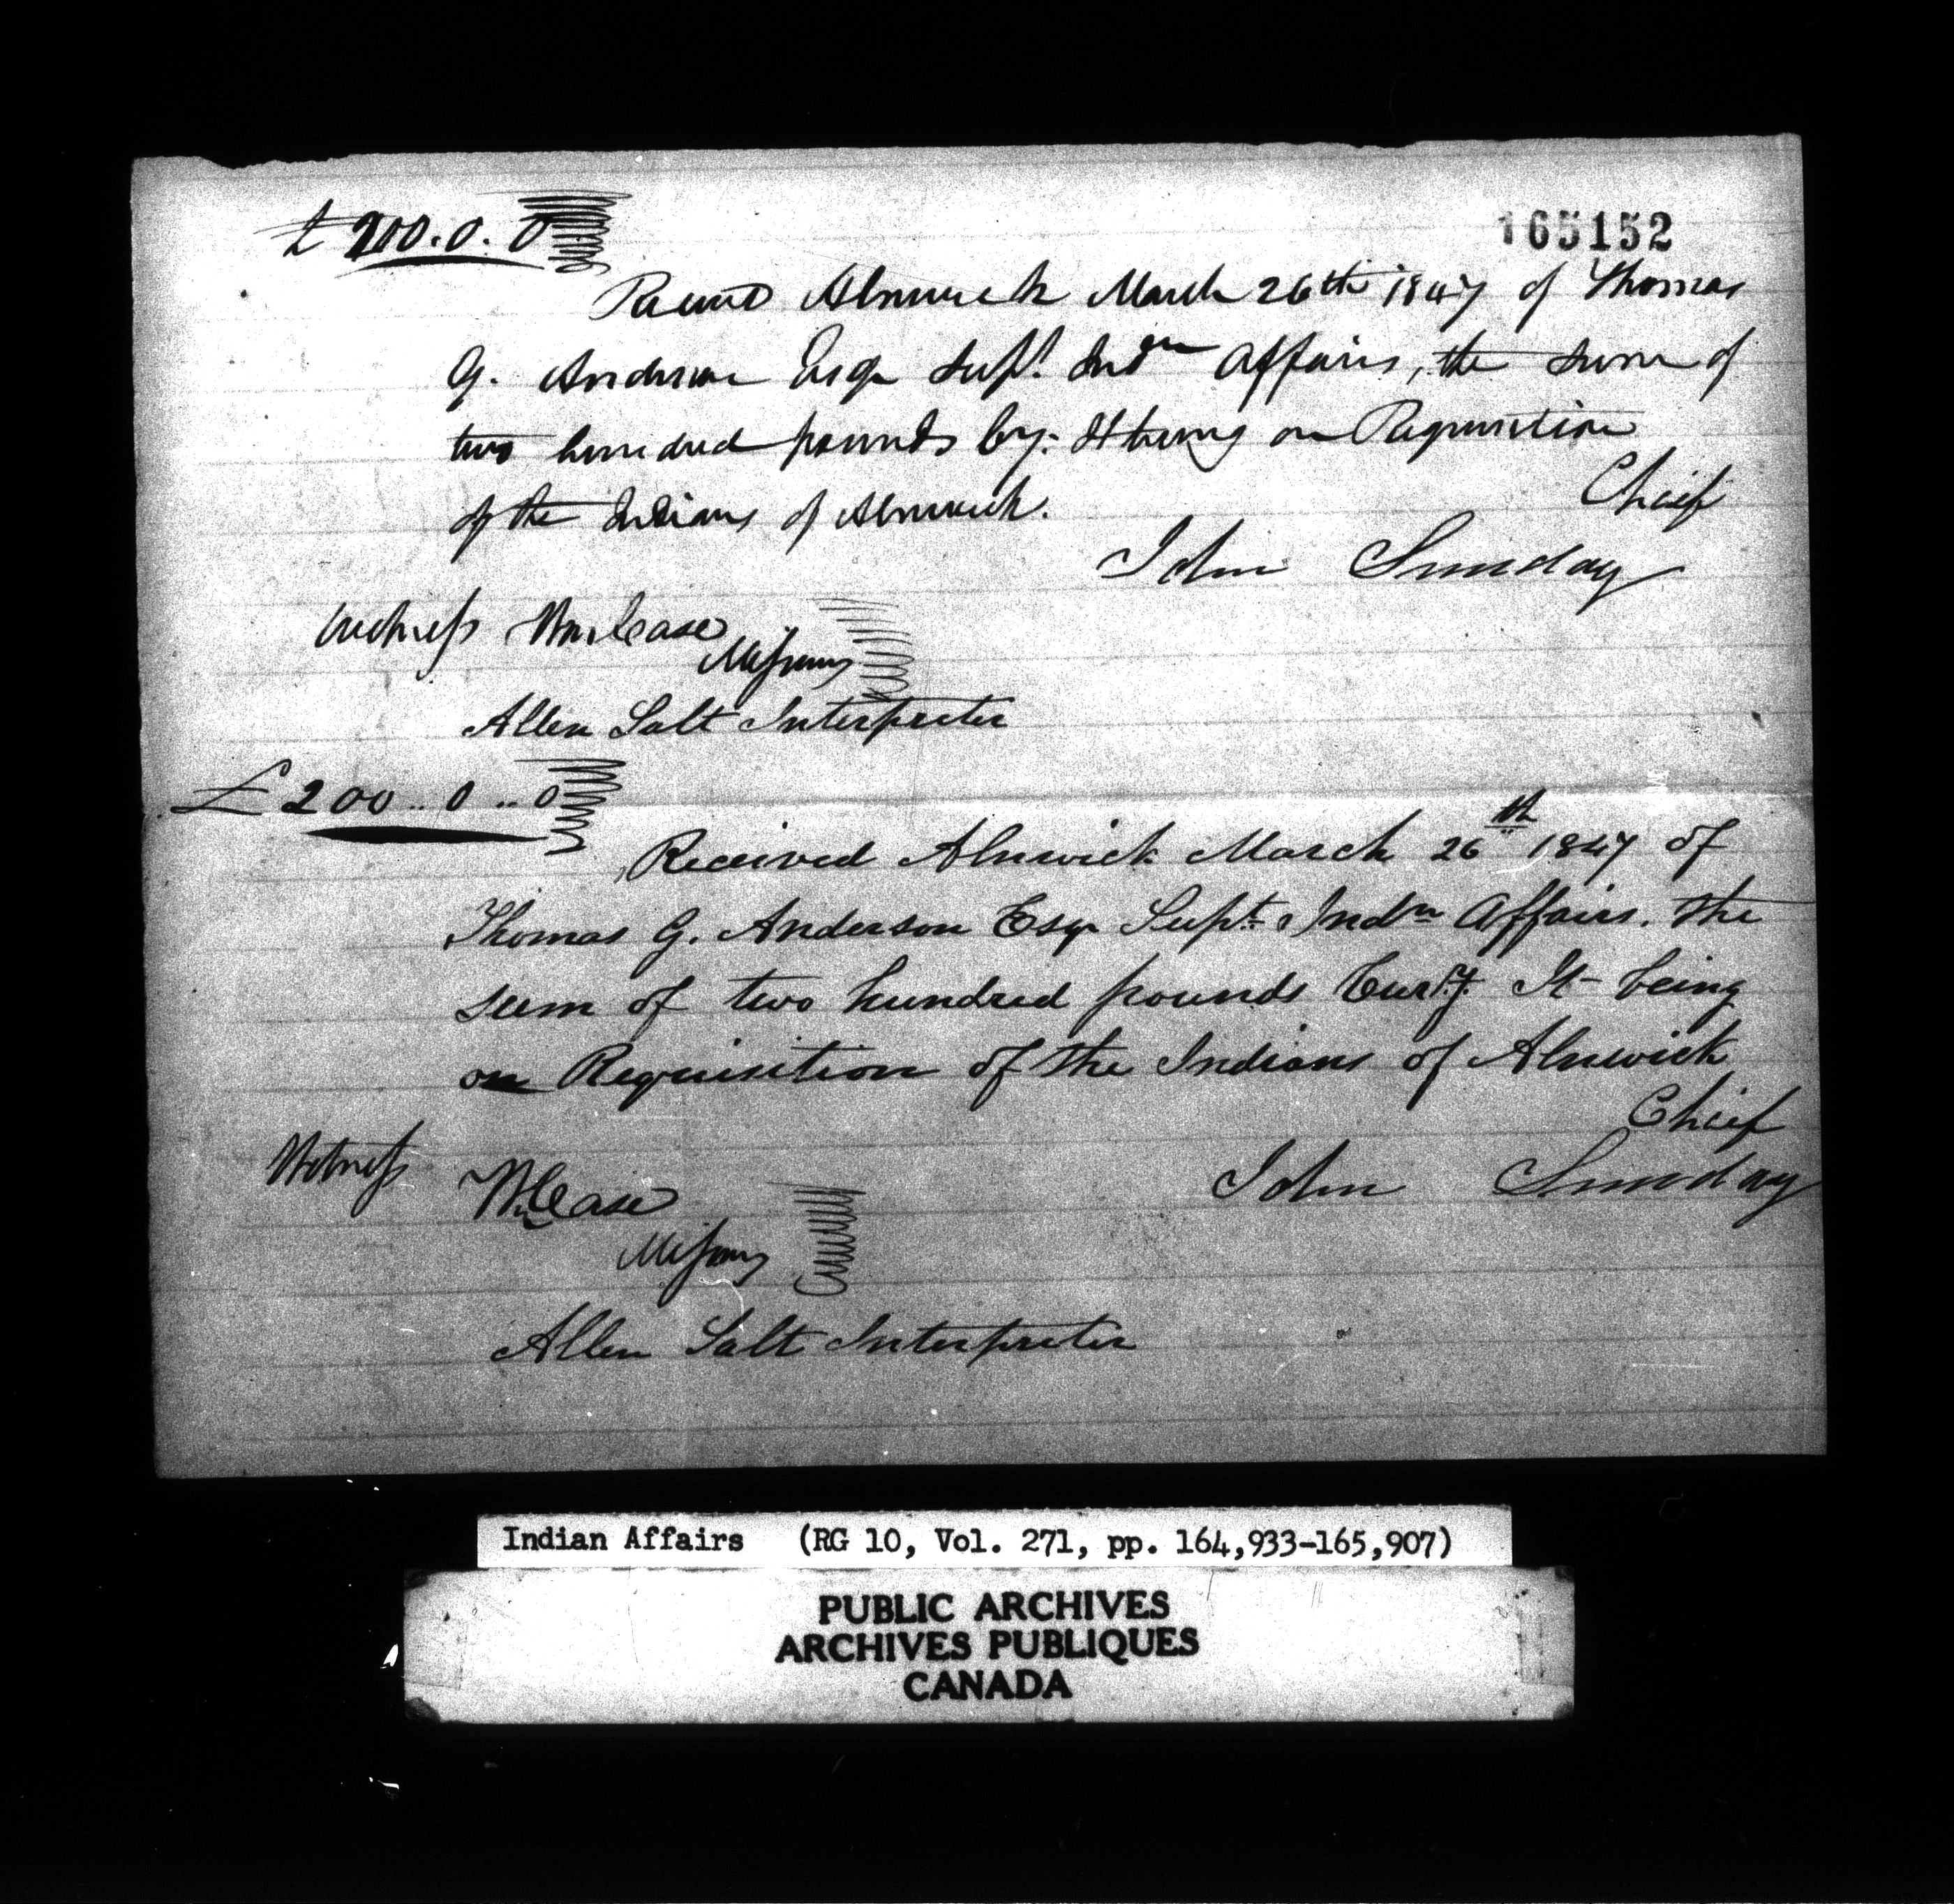 £ 200. 0. 0
165152
Received Alnwick March 26th 1847 of Thomas
G. Anderson Esqr Supt. Indian Affairs, the sum of
two hundred pounds Cy. It being on Requisition
of the Indians of Alnwick.
Chief
John Sunday
Witness Wm. Case
Missiony
Allen Salt Interpreter
£ 200 .. 0 .. 0
Received Alnwick March 26th 1847 of
Thomas G. Anderson Esqr Supt. Indn Affairs. the
sum of two hundred pounds Curry. It being
on Requisition of the Indians of Alnwick
Chief
John Sunday
Witness W. Case
Missiony
Allen Salt Interpreter
Indian Affairs (RG 10, Vol. 271, pp. 164,933-165,907)
PUBLIC ARCHIVES
ARCHIVES PUBLIQUES
CANADA